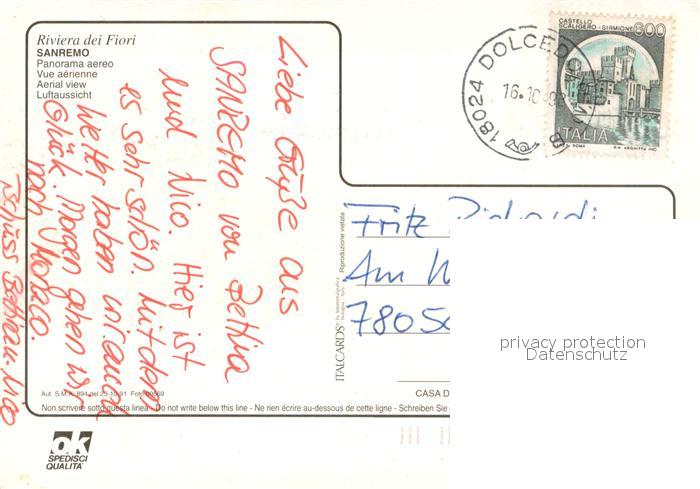 Riviera dei Fiori
SANREMO
Panorama aereo
Vue aérienne
Aerial view
Luftaussicht
Liebe Grüße aus
SANREMO von Bettina
und Nico. Hier ist
es sehr schön. Mit dem
Wetter haben wir auch
Glück. Morgen gehen wir
nach Monaco.
Tschüss Bettina-Nico
CASTELLO
SCALIGERO - SIRMIONE
800
ITALIA
ROMA
18024 DOLCEDO
16.10
Fritz
Am
7805
ITALCARDS
Riproduzione vietata
privacy protection
Datenschutz
CASA D
Aut. S.M.A. 894 del 25-10-91 Foto 00569
Non scrivere sotto questa linea - Do not write below this line - Ne rien écrire au-dessous de cette ligne - Schreiben Sie
ok
SPEDISCI
QUALITA'